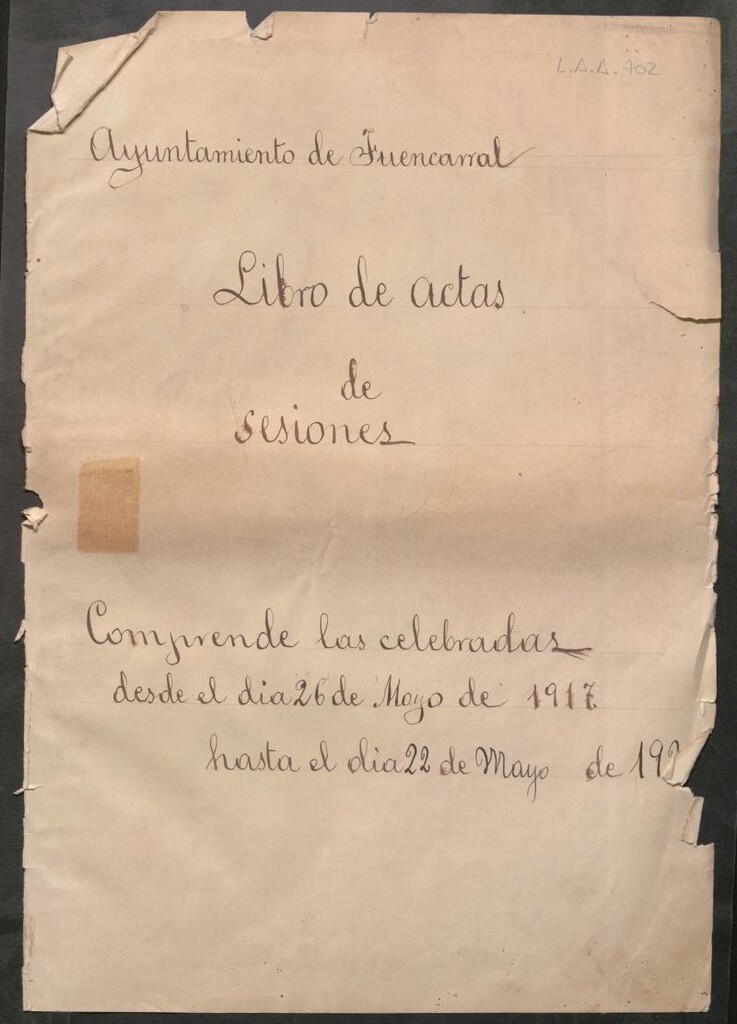 L.A.A. 702
Ayuntamiento de Fuencarral
Libro de actas
de
sesiones
Comprende las celebradas
desde el dia 26 de Mayo de 1917
hasta el dia 22 de Mayo de 192